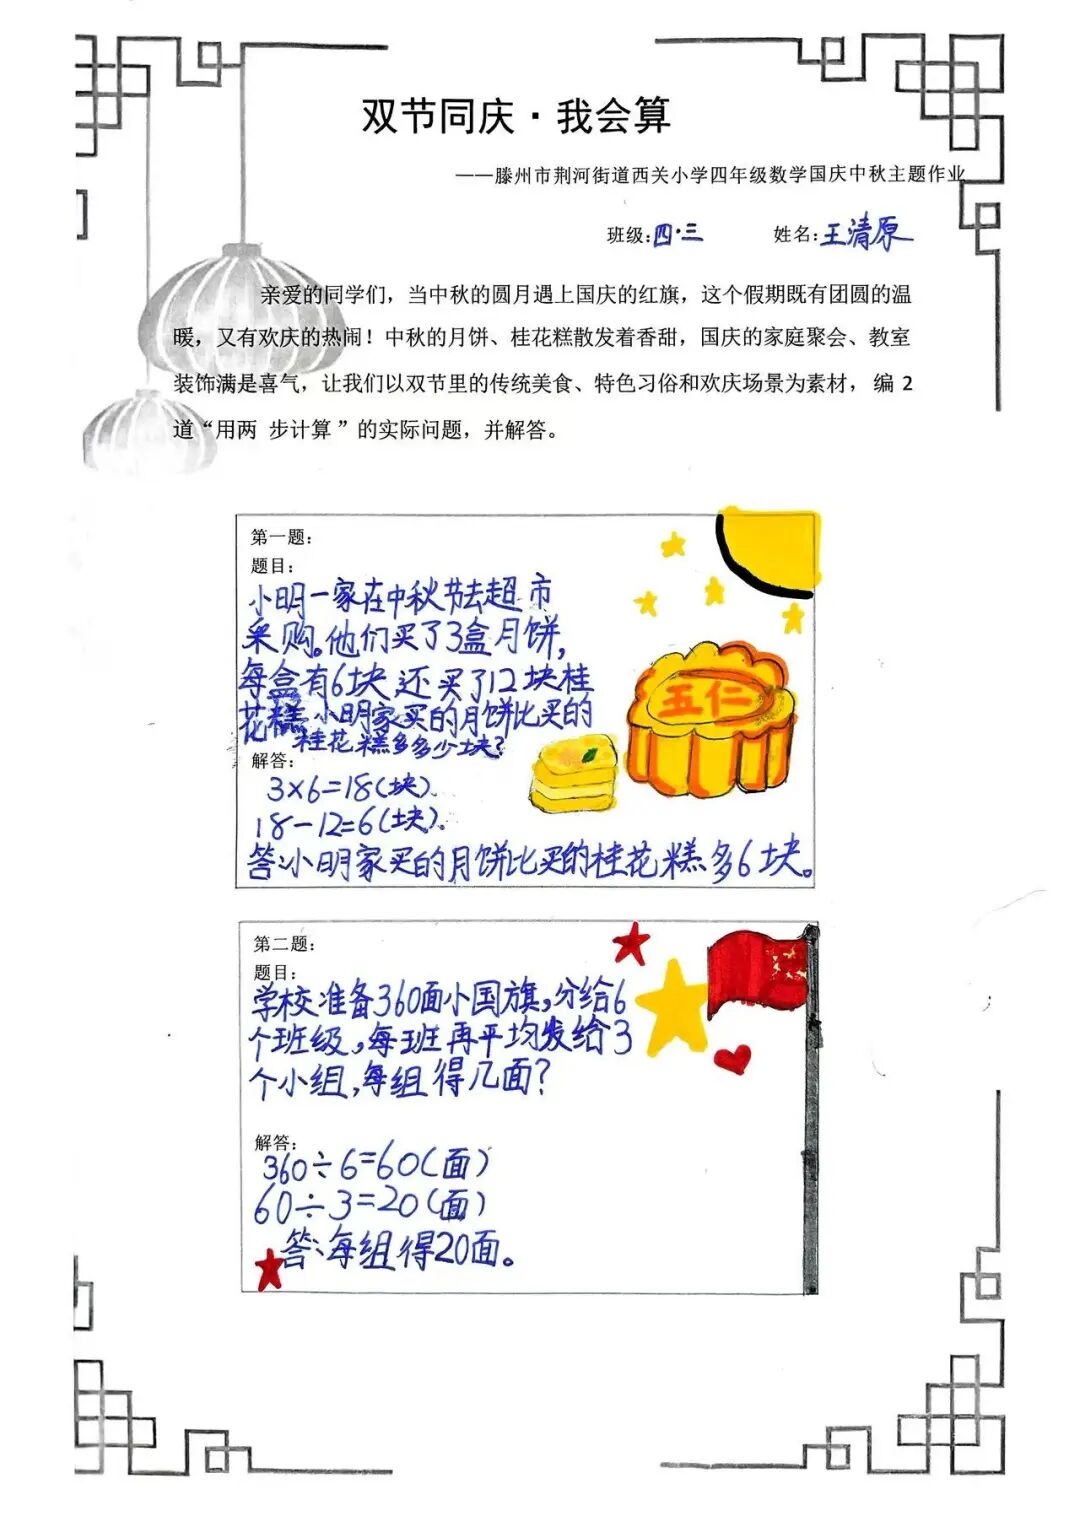 双节同庆·我会算
——滕州市荆河街道西关小学四年级数学国庆中秋主题作业
班级:四·三 姓名:王清原
亲爱的同学们，当中秋的圆月遇上国庆的红旗，这个假期既有团圆的温
暖，又有欢庆的热闹！中秋的月饼、桂花糕散发着香甜，国庆的家庭聚会、教室
装饰满是喜气，让我们以双节里的传统美食、特色习俗和欢庆场景为素材，编 2
道“用两 步计算”的实际问题，并解答。
第一题：
题目：
小明一家在中秋节去超市
采购。他们买了3盒月饼，
每盒有6块,还买了12块桂
花糕,小明家买的月饼比买的
桂花糕多多少块？
解答：
3×6=18(块).
18-12=6(块).
答:小明家买的月饼比买的桂花糕多6块。
五仁
第二题：
题目：
学校准备360面小国旗,分给6
个班级,每班再平均发给3
个小组,每组得几面？
解答：
360÷6=60(面)
60÷3=20(面)
答:每组得20面。